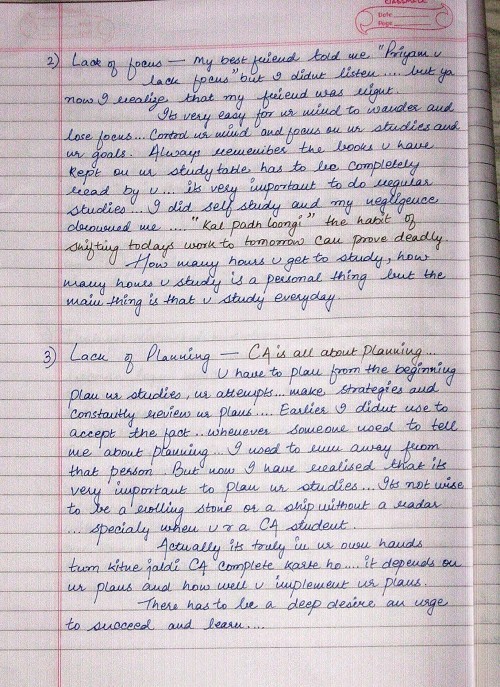 Date
Page
2) Lack of focus — my best friend told me "Priyam u
lack focus" but I didnt listen .... but ya
now I realize that my friend was right.
Its very easy for ur mind to wander and
lose focus... Control ur mind and focus on ur studies and
ur goals. Always remember the books u have
kept on ur study table has to be completely
read by u ... its very important to do regular
studies... I did self study and my negligence
drowned me .... "Kal padh loongi" the habit of
shifting todays work to tomorrow can prove deadly.
How many hours u get to study, how
many hours u study is a personal thing but the
main thing is that u study everyday.
3) Lack of Planning — CA is all about Planning...
U have to plan from the beginning
plan ur studies, ur attempts... make strategies and
constantly review ur plans .... Earlier I didnt use to
accept the fact .. whenever someone used to tell
me about planning... I used to run away from
that person. But now I have realised that its
very important to plan ur studies... Its not wise
to be a rolling stone or a ship without a radar
... specialy when u r a CA student.
Actually its truly in ur own hands
tum kitne jaldi CA complete karte ho .... it depends on
ur plans and how well u implement ur plans.
There has to be a deep desire an urge
to succeed and learn....